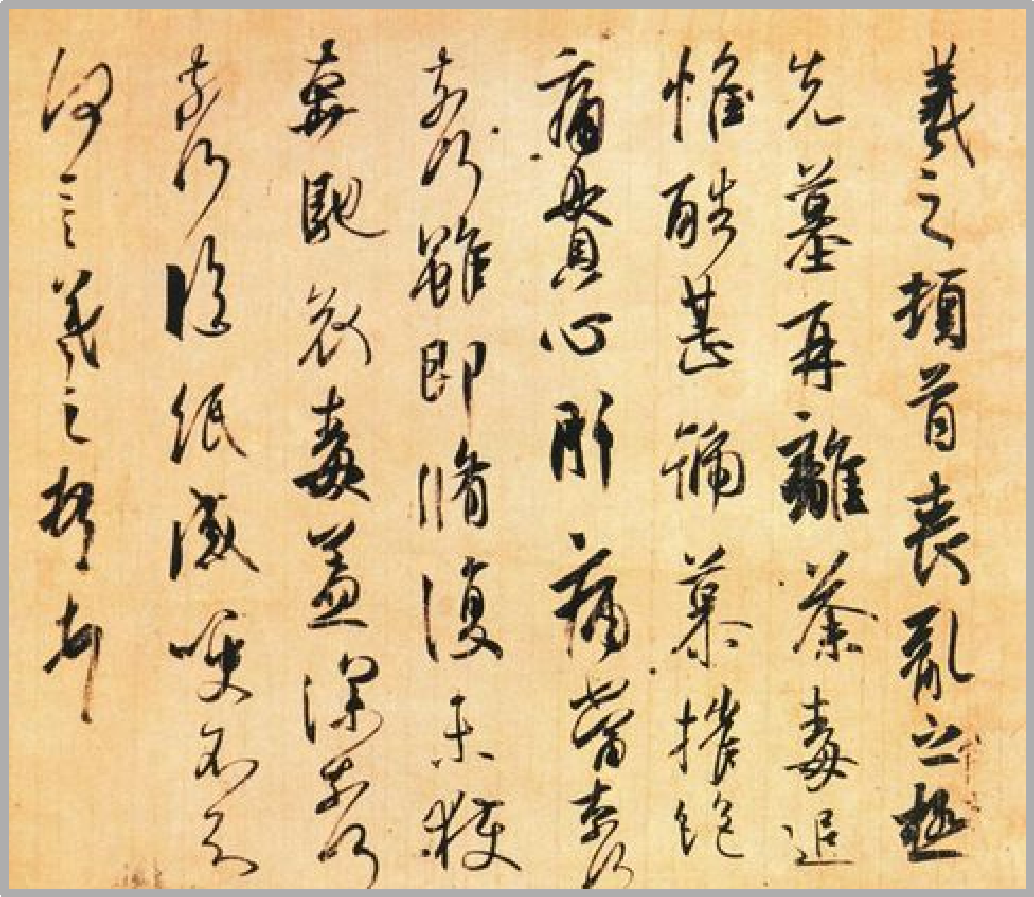 羲之頓首喪亂之極
先墓再離荼毒追
惟酷甚號慕摧絶
痛貫心肝痛當柰何
柰何雖即脩復未獲
奔馳哀毒益深柰何
柰何臨紙感哽不知
何言羲之頓首頓首